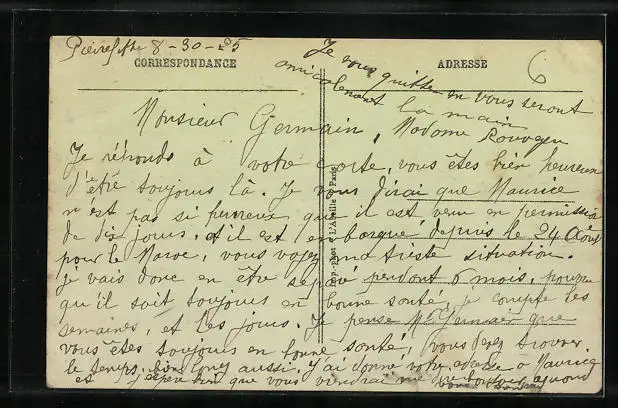 Pierrefitte 8-30-25
CORRESPONDANCE
ADRESSE
6
Je vous quitte en vous serant
amicalement la main
Monsieur Germain, Madame
Je réponds à votre carte, vous êtes bien heureux
d'être toujours là. Je vous dirai que Maurice
n'est pas si heureux que il est venu en permission
de dix jours, et il est en barque depuis le 24 Août
pour le Maroc, vous voyez ma triste situation.
je vais donc en être séparé pendant 6 mois, pourvu
qu'il soit toujours en bonne santé, je compte les
semaines, et les jours. Je pense Mr Germain que
vous êtes toujours en bonne santé, vous devez trouver
le temps bien long aussi. J'ai donné votre adresse à Maurice
et j'espère bien que vous viendrai me
Imp.-phot. "L'Abeille", Paris